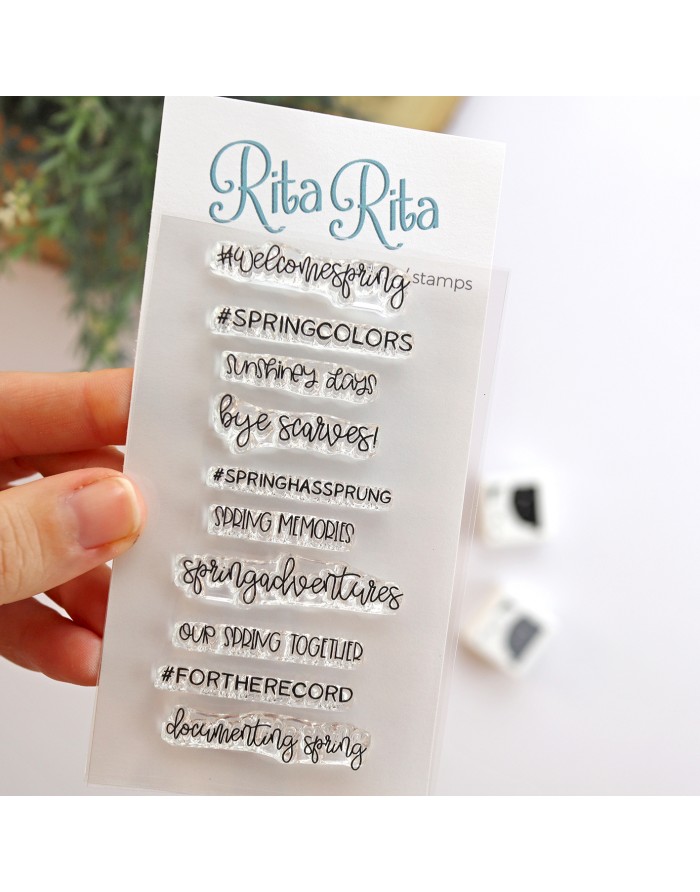 Rita Rita
stamps
#welcomespring
#SPRINGCOLORS
sunshiney days
bye scarves!
#SPRINGHASSPRUNG
SPRING MEMORIES
springadventures
OUR SPRING TOGETHER
#FORTHERECORD
documenting spring